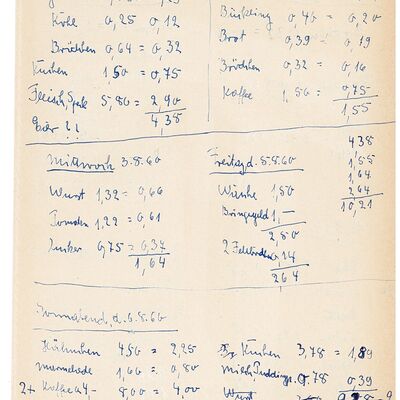 Kohl 0,25 0,12
Brötchen 0,64 = 0,32
Kuchen 1,50 = 0,75
Fleisch, Speck 5,80 = 2,90
4,35
Bückling 0,40 = 0,20
Brot 0,39 = 0,19
Brötchen 0,32 = 0,16
Kaffe 1,50 = 0,75
1,55
Mittwoch 3.8.60
Wurst 1,32 = 0,66
Tomaten 1,22 = 0,61
Zucker 0,75 = 0,37
1,64
Freitag d. 5.8.60
Wäsche 1,80
Bringegeld 1,—
2,80
0,14
2 64
4 35
1,55
1,64
2 64
10,21
Sonnabend, d. 6.8.60
Hähnchen 4,50 = 2,25
Marmelade 1,60 = 0,80
2+ Kaffe a 4- 8,00 = 4,00
Kuchen 3,78 = 1,89
Milch, Puddings. 0,78 0,39
Wurst